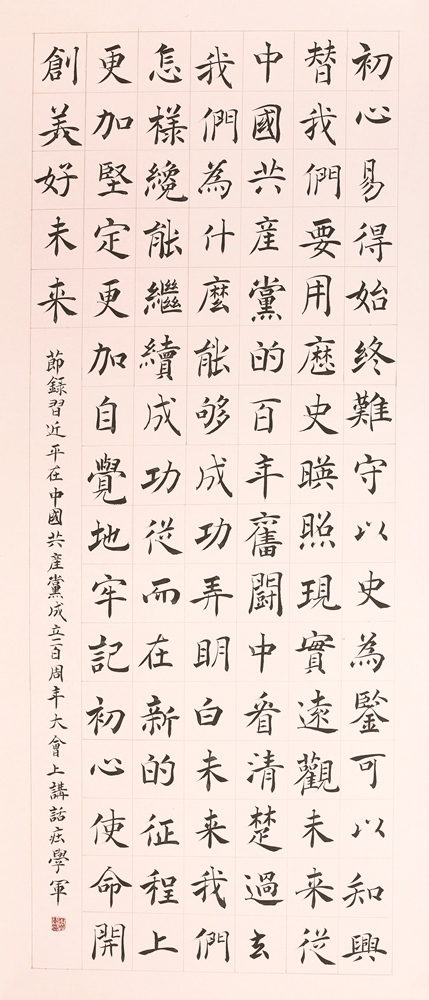 初心易得始終難守以史為鑒可以知興
替我們要用歷史暎照現實遠觀未来從
中國共産黨的百年奮鬭中看清楚過去
我們為什麼能够成功弄明白未来我們
怎樣纔能繼續成功從而在新的征程上
更加堅定更加自覺地牢記初心使命開
創美好未来
節録習近平在中國共産黨成立一百周年大會上講話庒學軍